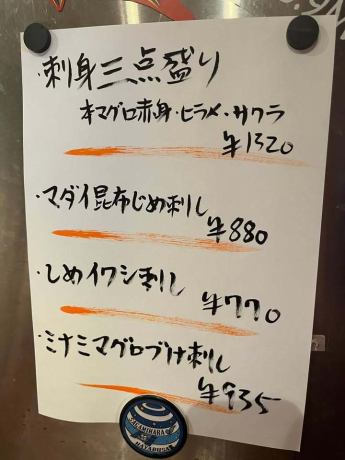 ・刺身三点盛り
本マグロ赤身・ヒラメ・サクラ
¥1320
・マダイ昆布じめ刺し
¥880
・しめイワシ刺し
¥770
・ミナミマグロづけ刺し
¥935
SAGAMIHARA
HAYABUSA